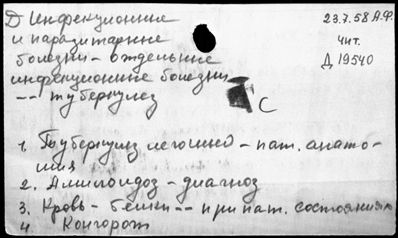 Д Инфекционные
и паразитарные
болезни - отдельные
инфекционные болезни
-- туберкулез
23.7.58 А.Ф.
Чит.
Д 19540
С
1. Туберкулез легочной - пат. анато-
мия
2. Амилоидоз - диагноз
3. Кровь - белки -- при пат. состояниях
4 Конгорот